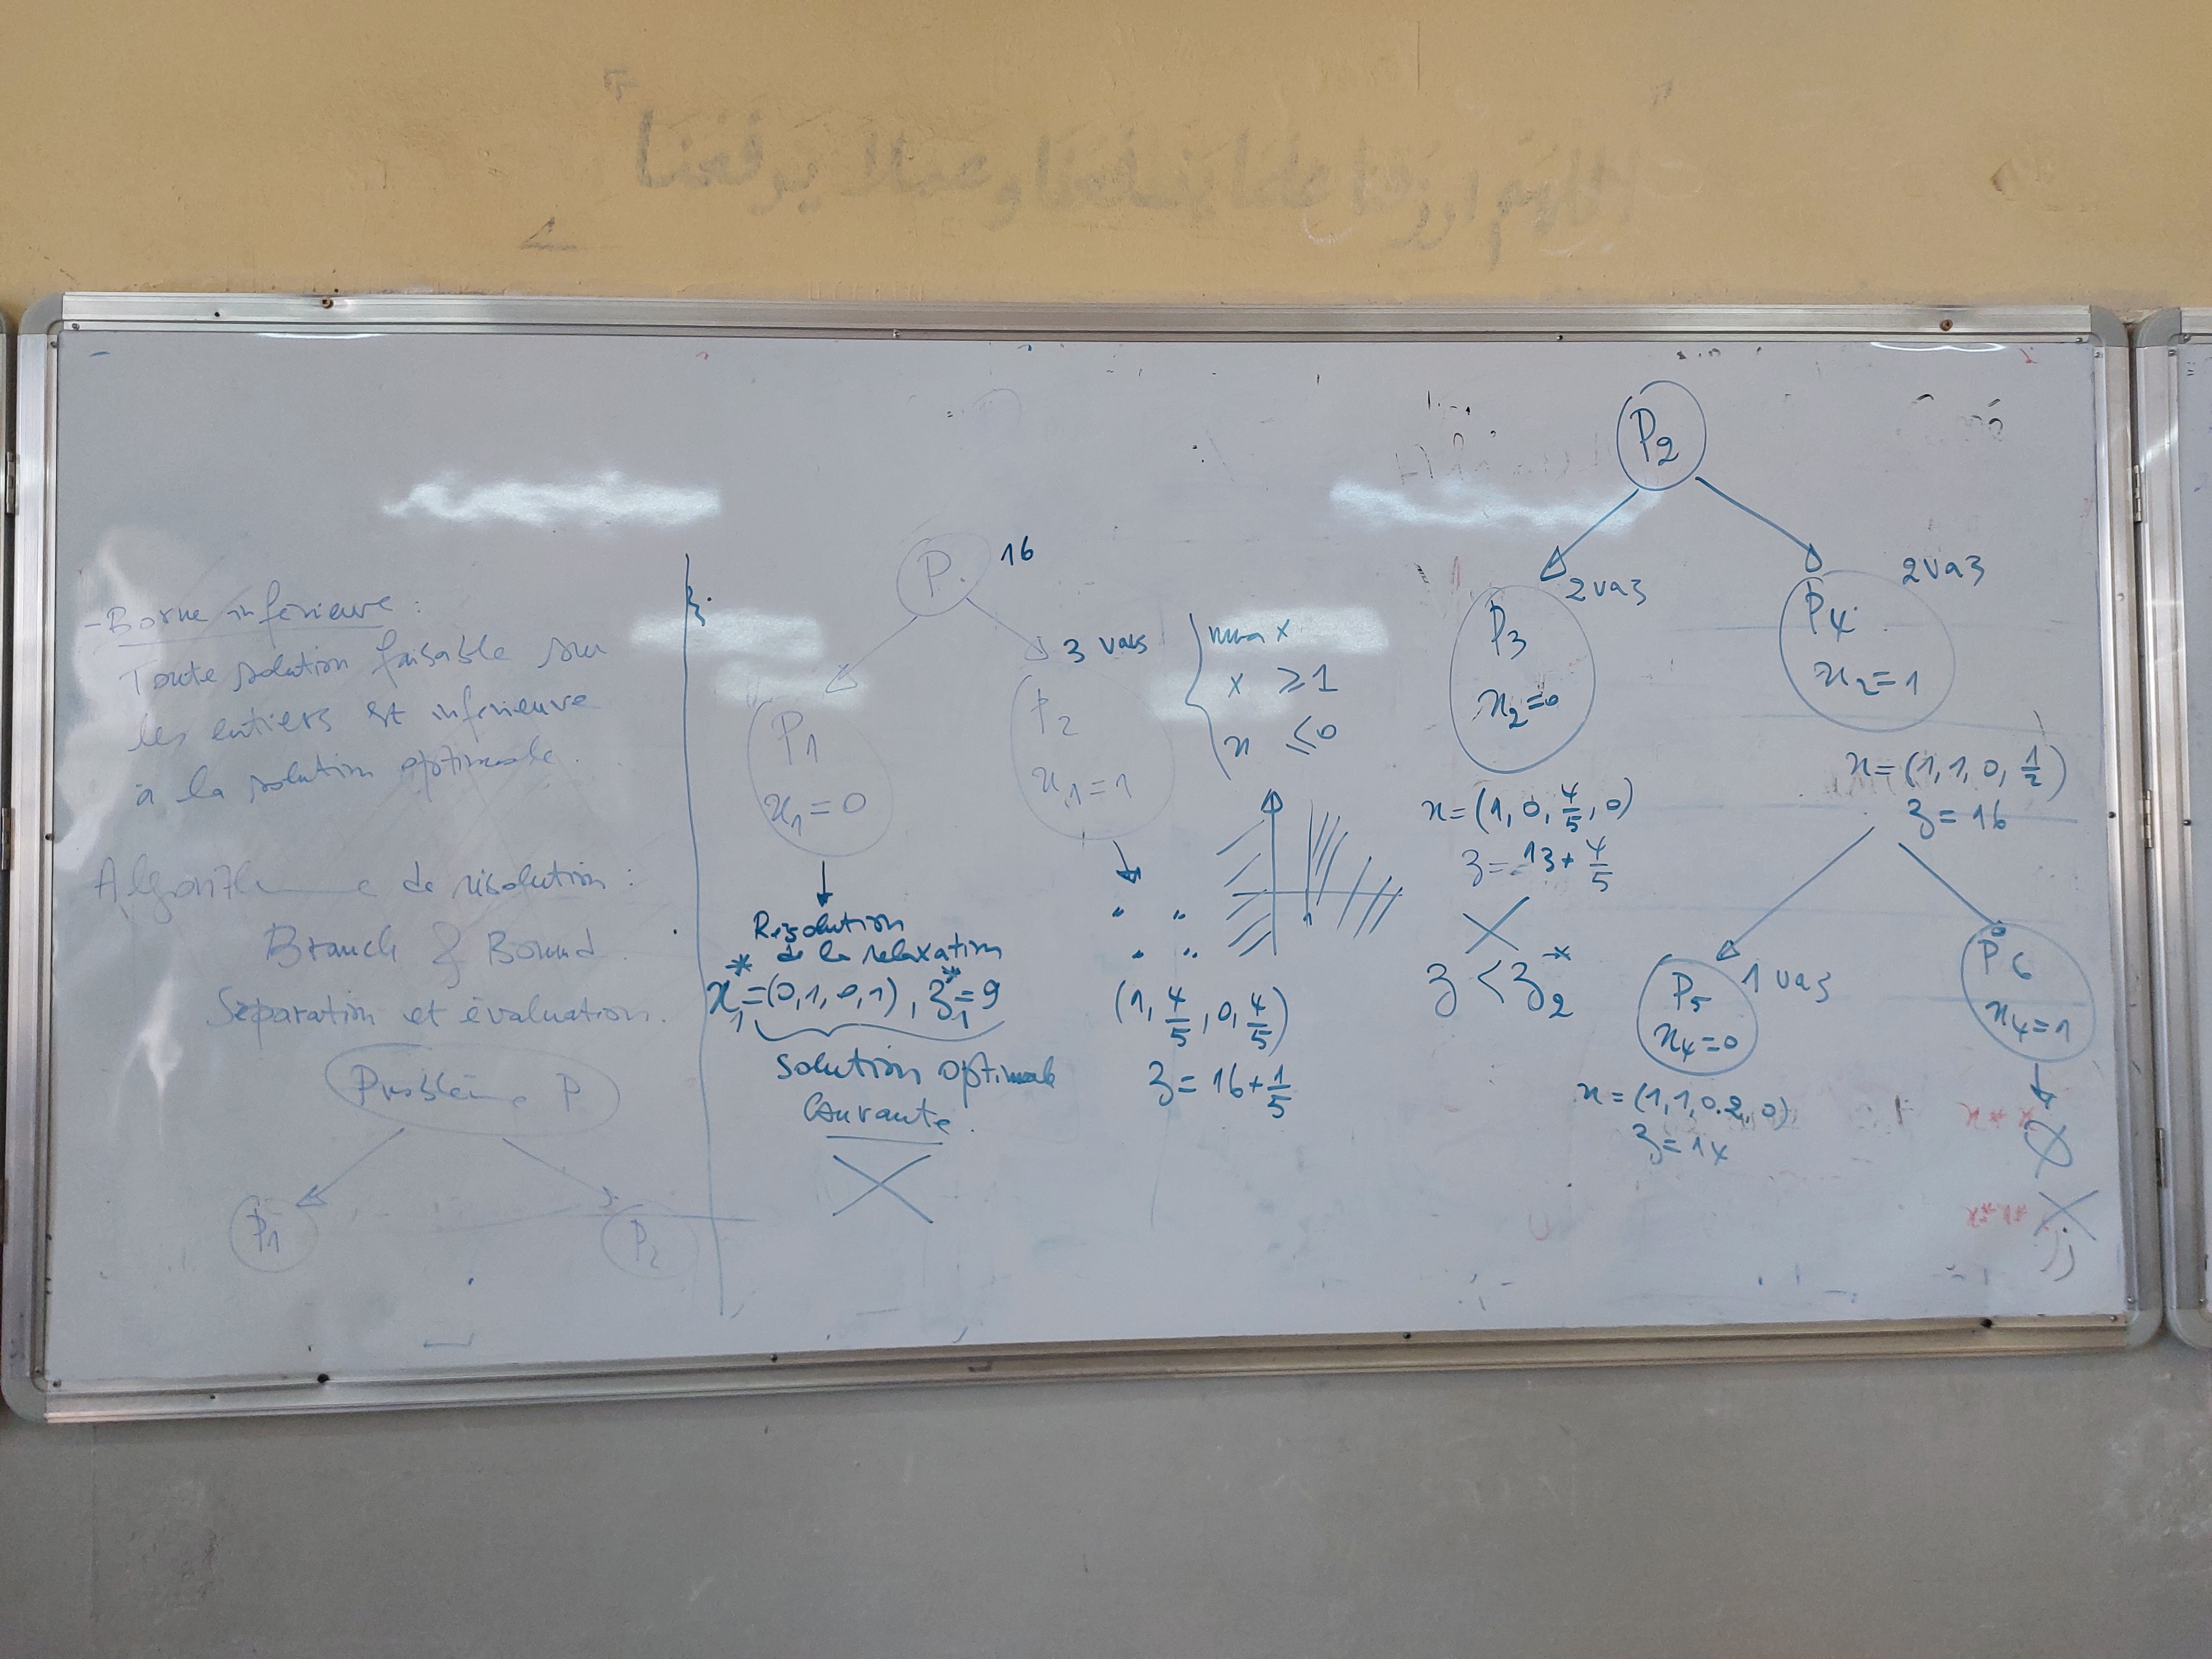 اللهم ارزقنا علما ينفعنا وعملا يرفعنا
- Borne inférieure :
Toute solution faisable sur
les entiers est inférieure
à la solution optimale.
Algorithme de résolution :
Branch & Bound.
Séparation et évaluation.
Problème P
P1
P2
P. 16
3 vars
P1
x1=0
P2
x1=1
Résolution
de la relaxation
x*1=(0,1,0,1), z*1=9
solution optimale
courante.
" "
" "
(1, 4/5, 0, 4/5)
z = 16+1/5
max x
x ≥1
x ≤0
1
P2
2 vars
P3
x2=0
x=(1, 0, 4/5, 0)
z= 13+4/5
z < z*2
2 vars
P4
x2=1
x=(1,1,0,1/2)
z=16
1 vars
P5
x4=0
x=(1,1,0.2,0)
z=14
P6
x4=1
∅